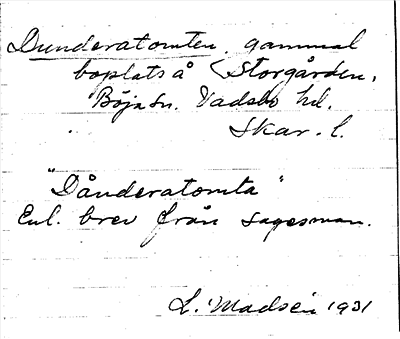 Dunderatomten, gammal
boplats å Storgården,
Böja sn. Vadsbo hd.
Skar. l.
"Dånderatomta"
Enl. brev från sagesman.
L. Madsén 1931